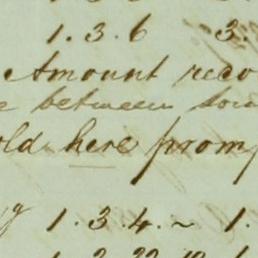 1. 3. 6 3.
Amount reco
e between
old here prom
1. 3. 4. ~ 1.